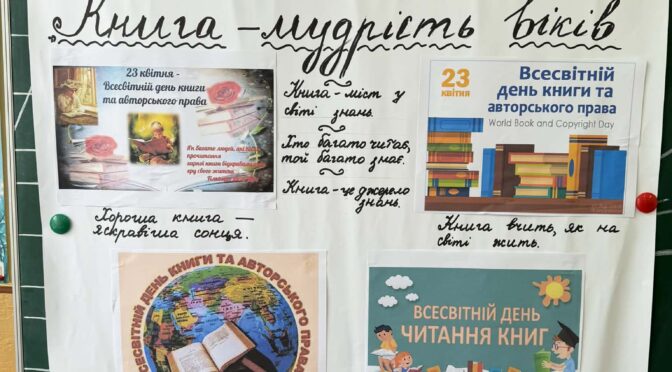 Книга – мудрість віків
23 квітня -
Всесвітній день книги
та авторського права
Як багато людей, які
прочитання
еру свого життя.
Книга – міст у
світі знань.
Хто багато читає,
той багато знає.
Книга – це джерело
знань.
23
квітня
Всесвітній
день книги та
авторського права
World Book and Copyright Day
Хороша книга —
яскравіша сонця.
Книга вчить, як на
світі жить.
ВСЕСВІТНІЙ ДЕНЬ КНИГИ ТА АВТОРСЬКОГО ПРАВА
ВСЕСВІТНІЙ ДЕНЬ
ЧИТАННЯ КНИГ